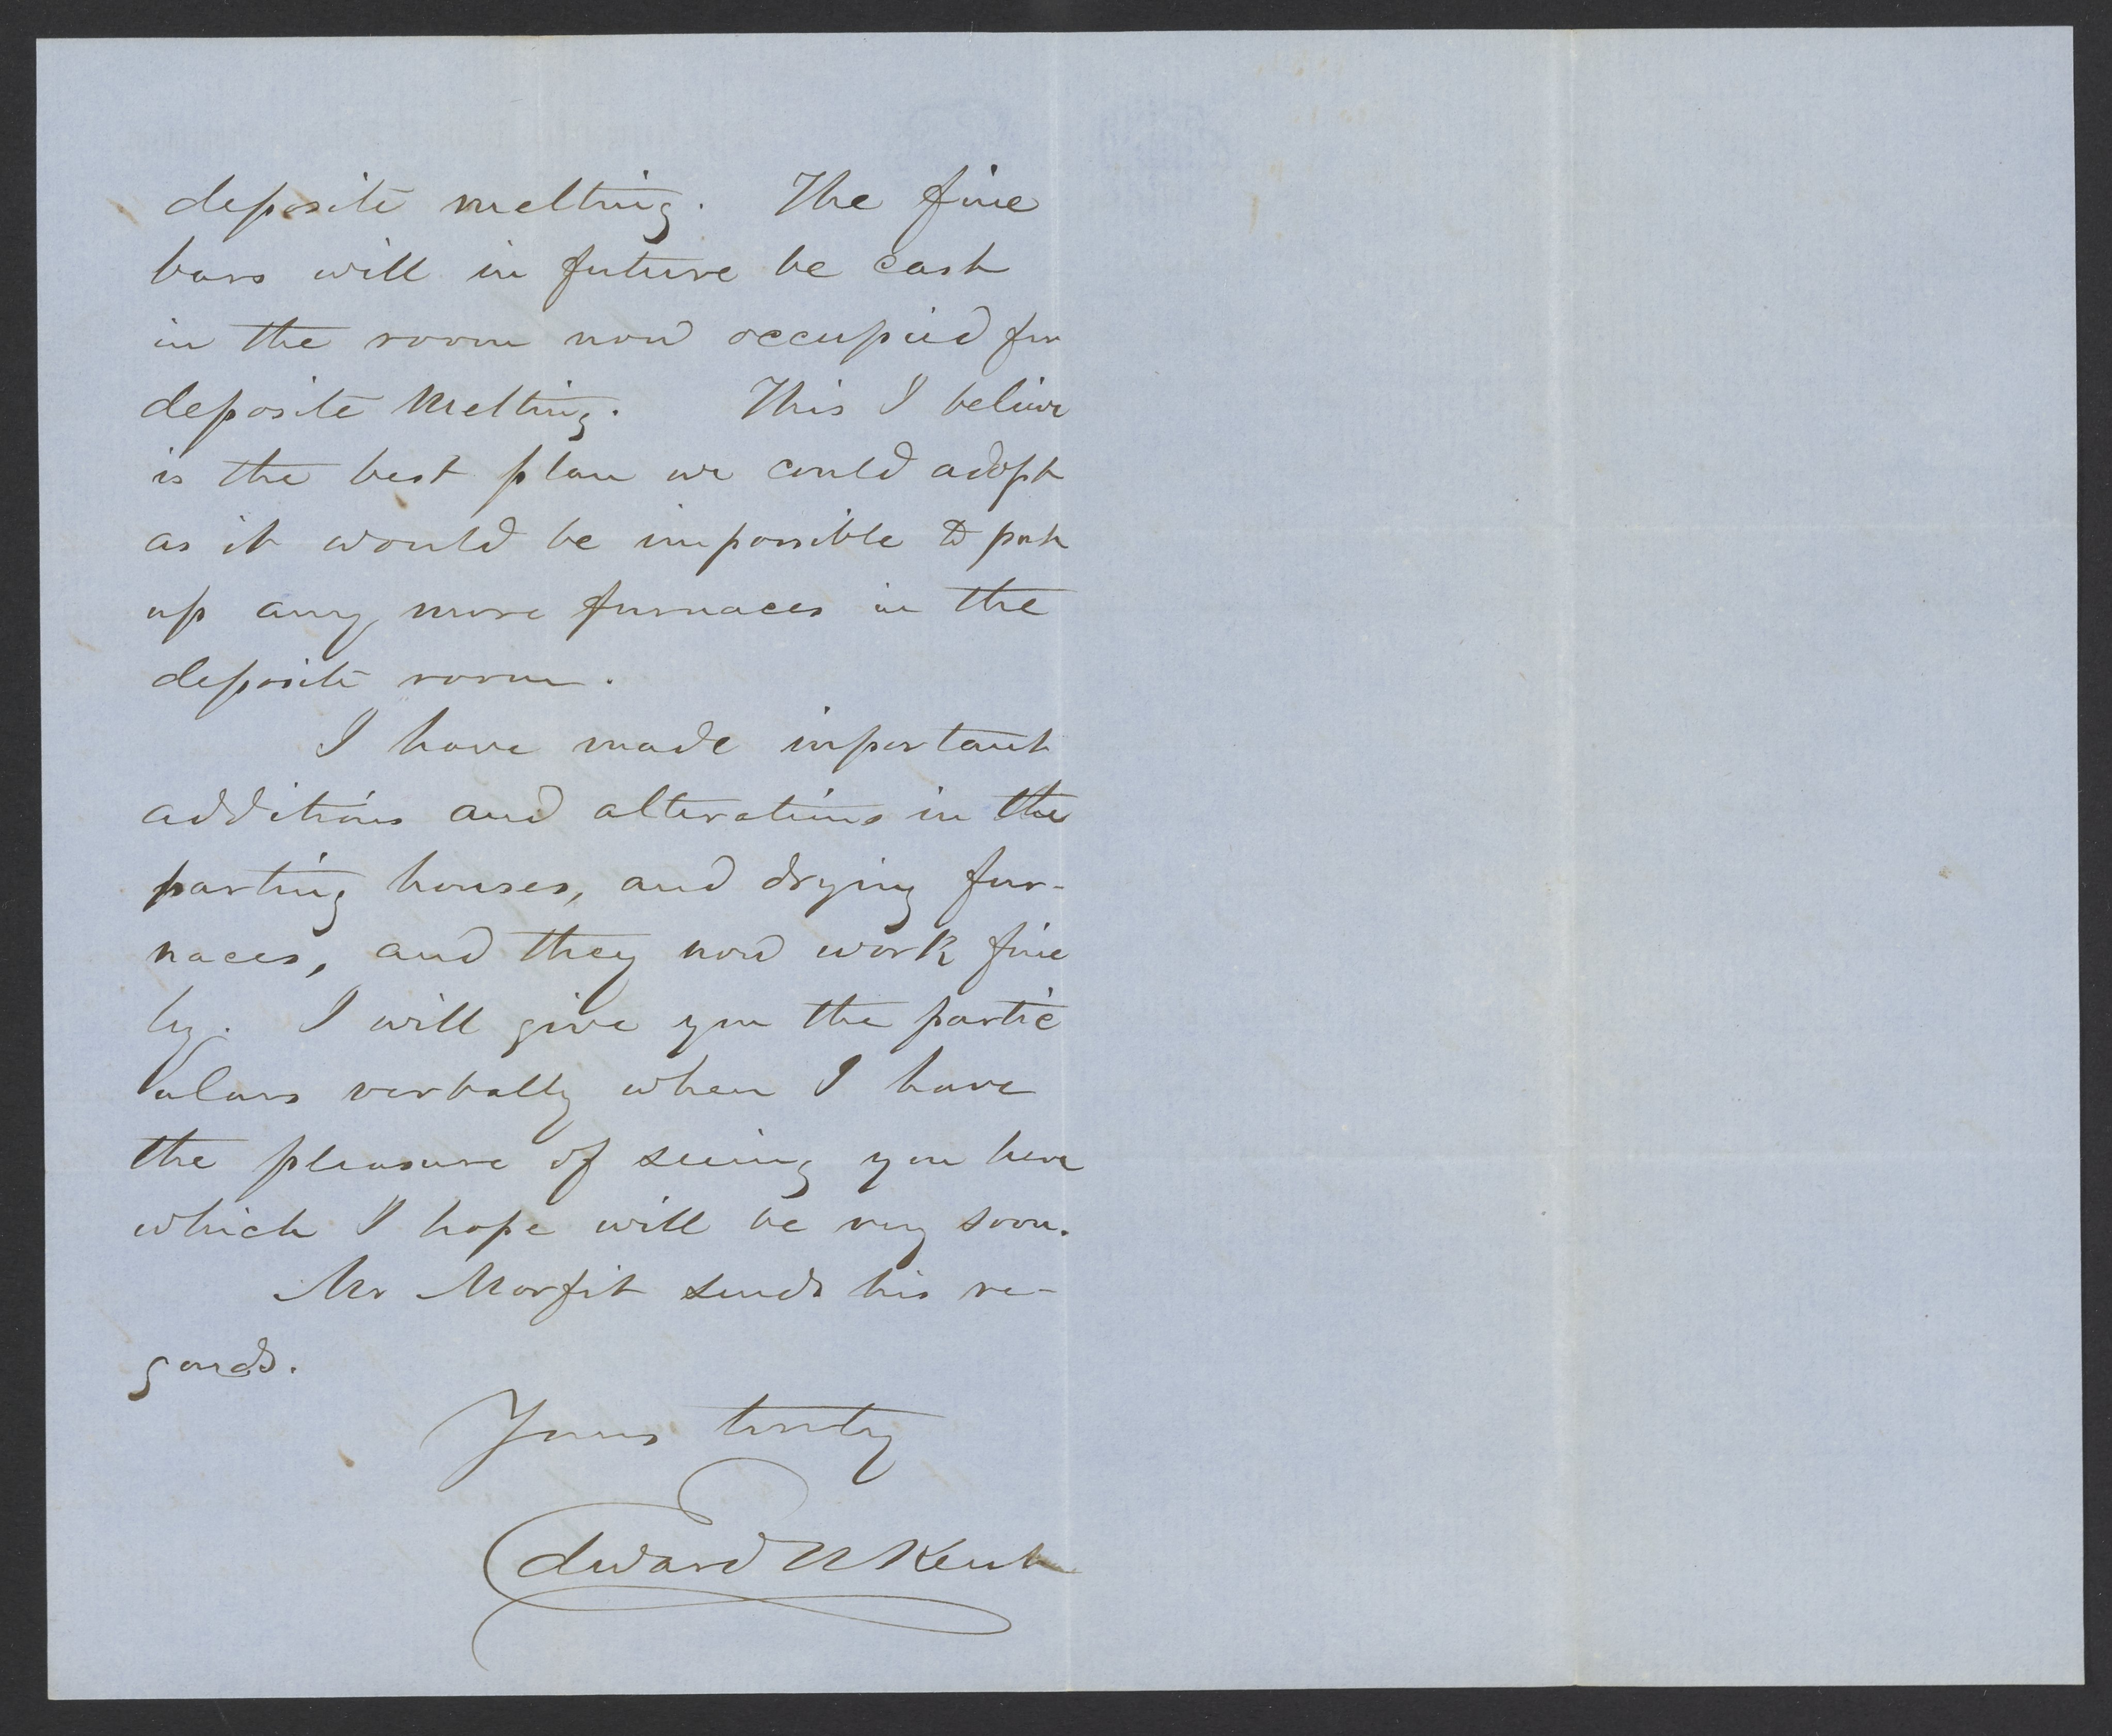 deposite melting. The fine
bars will in future be cast
in the room now occupied for
deposite Melting. This I believe
is the best plan we could adopt
as it would be impossible to put
up any more furnaces in the
deposite room.
I have made important
additions and alterations in the
parting houses, and drying fur-
naces, and they now work fine
ly. I will give you the partic
ulars verbally when I have
the pleasure of seeing you here
which I hope will be very soon.
Mr Morfit sends his re-
gards.
Yours truly
Edward N Kent